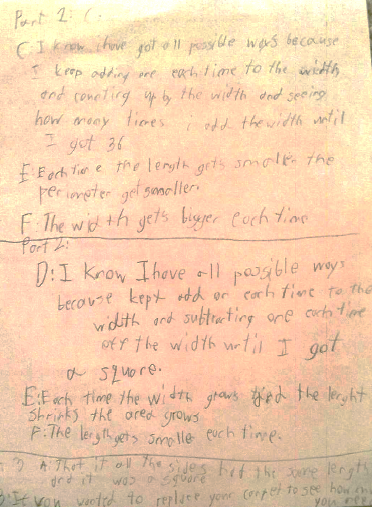 Part 1: C.
C: I know I have got all possible ways because
I keep adding one each time to the width
and counting up by the width and seeing
how many times i add the width until
I got 36
E: Each time the length gets smaller the
perimeter get smaller.
F: The width gets bigger each time
Part 2:
D: I know I have all possible ways
because kept add on each time to the
width and subtracting one each time
off the width until I got
a square.
E: Each time the width grows and the lenght
shrinks the area grows
F: The length gets smaller each time.
3 A. That if all the sides had the same length
and it was a square
B: If you wanted to replace your carpet to see how mu
you need